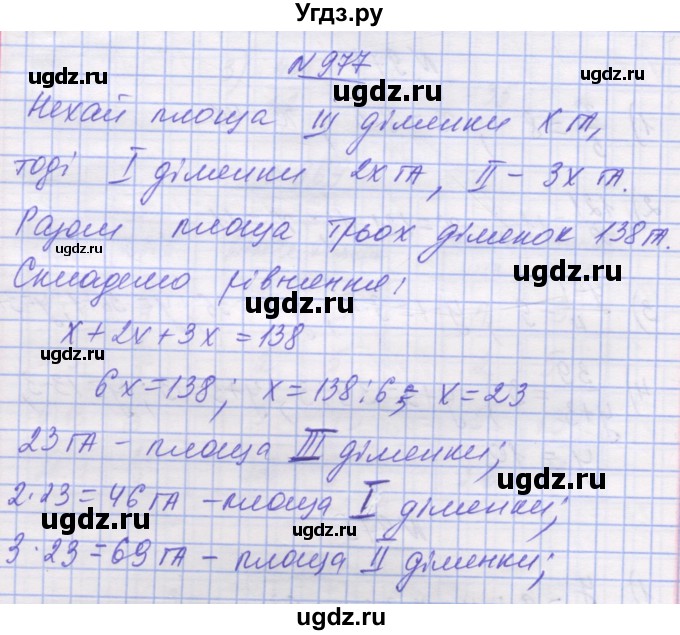 Угдз.ру
№977
ugdz.ru ugdz.ru
Нехай площа III ділянки x га,
тоді I ділянки 2x га, II – 3x га.
ugdz.ru
Разом площа трьох ділянок 138 га.
ugdz.ru ugdz.ru
Складемо рівняння:
ugdz.ru
x+2x+3x=138
ugdz.ru
6x=138; x=138:6; x=23
ugdz.ru
23 га – площа III ділянки;
ugdz.ru
2·23=46 га – площа I ділянки;
ugdz.ru ugdz.ru
3·23=69 га – площа II ділянки;
ugdz.ru
ugdz.ru